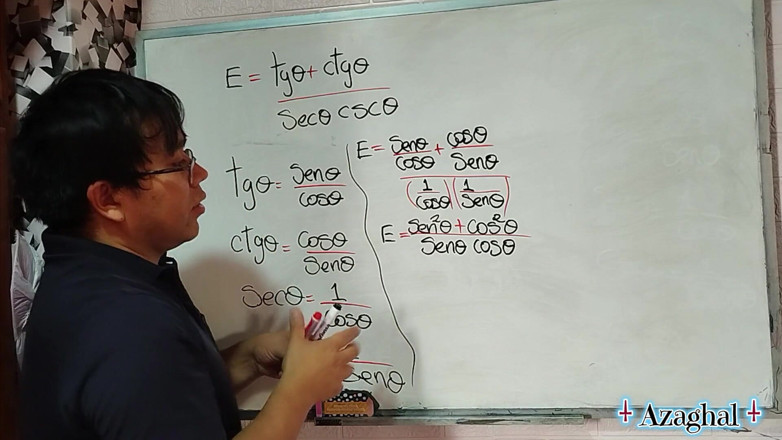 E = tgθ + ctgθ / secθ cscθ
tgθ = senθ / cosθ
ctgθ = cosθ / senθ
secθ = 1 / cosθ
senθ
E = senθ / cosθ + cosθ / senθ / (1 / cosθ)(1 / senθ)
E = sen²θ + cos²θ / senθ cosθ
Azaghal